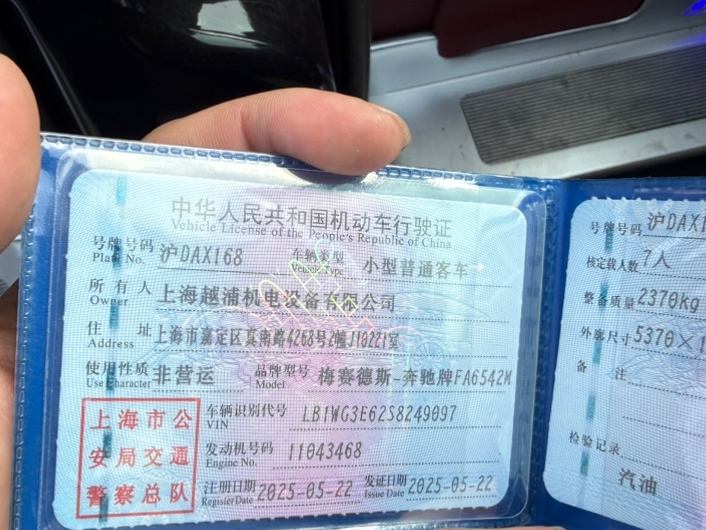 中华人民共和国机动车行驶证
Vehicle License of the People's Republic of China
号牌号码 沪DAX168 车辆类型 小型普通客车
Plate No. Vehicle Type
所有人 上海越浦机电设备有限公司
Owner
住址 上海市嘉定区真南路4268号2幢J10221室
Address
使用性质 非营运 品牌型号 梅赛德斯-奔驰牌FA6542M
Use Character Model
上海市公
安局交通
警察总队
车辆识别代号 LB1WG3E62S8249097
VIN
发动机号码 11043468
Engine No.
注册日期 2025-05-22 发证日期 2025-05-22
Register Date Issue Date
号牌号码 沪DAX1
核定载人数 7人
整备质量 2370kg
外廓尺寸 5370×1
备注
检验记录
汽油